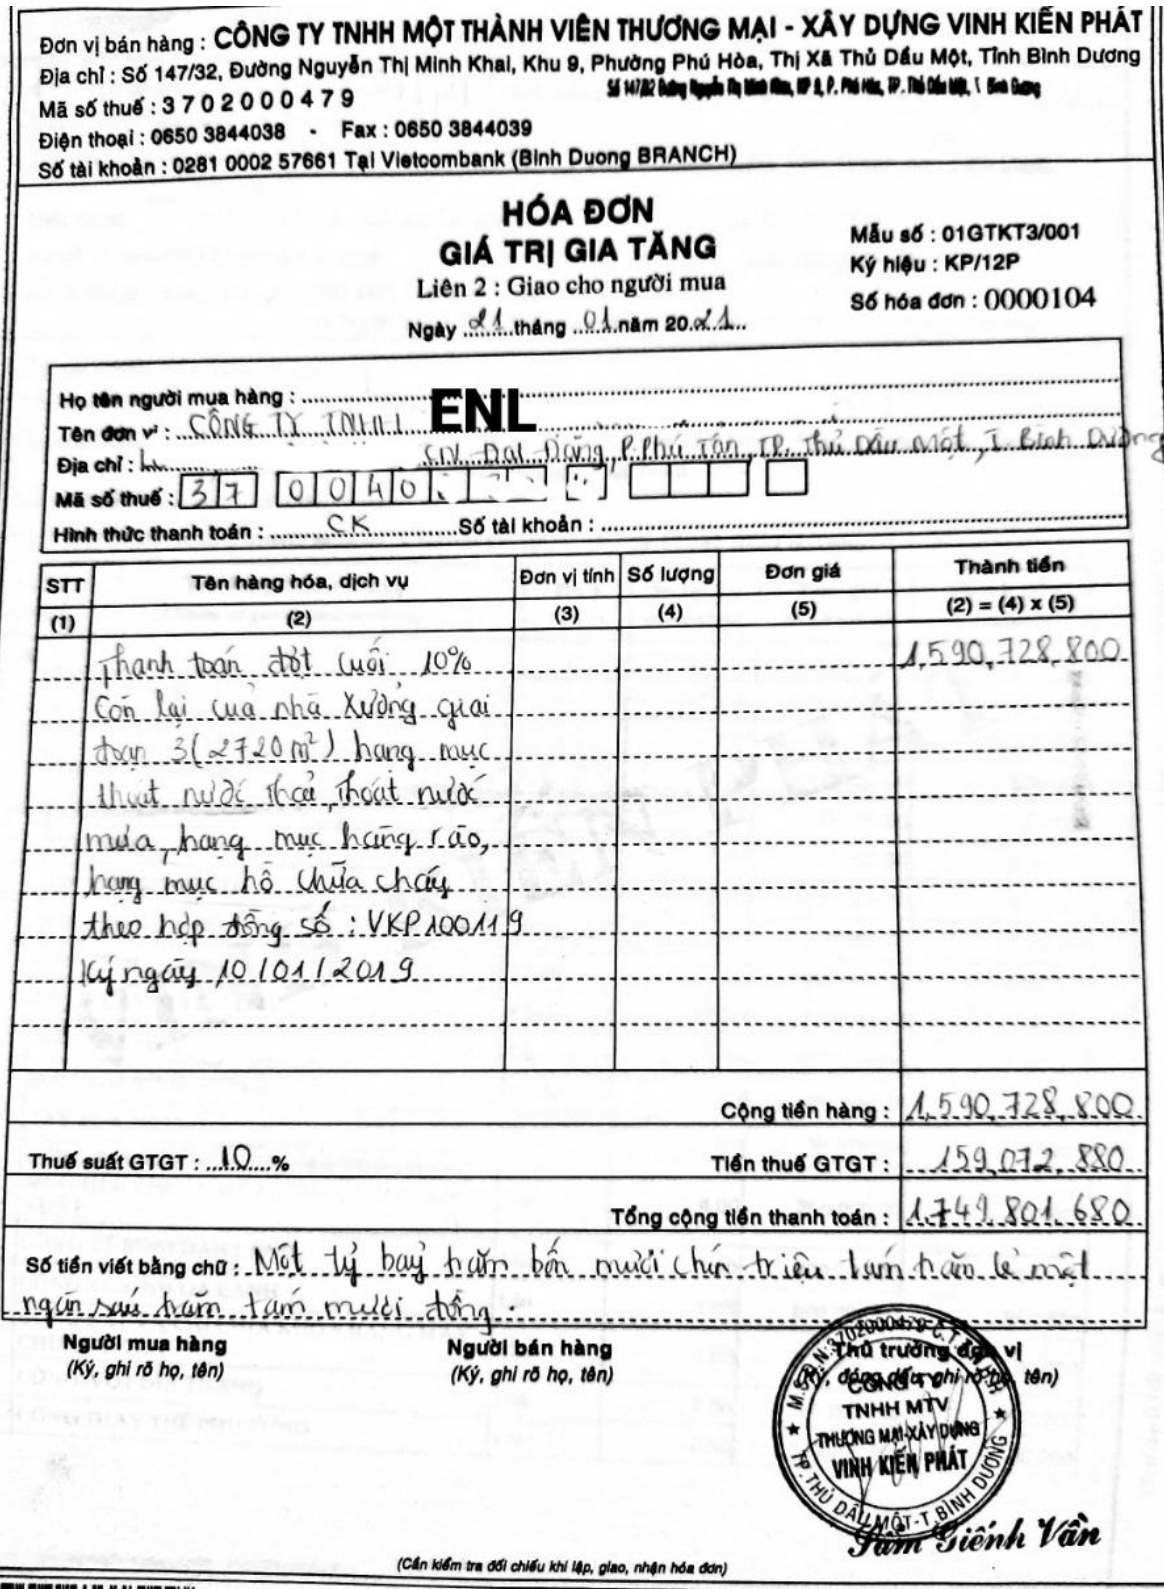 Đơn vị bán hàng : CÔNG TY TNHH MỘT THÀNH VIÊN THƯƠNG MẠI - XÂY DỰNG VINH KIẾN PHÁT
Địa chỉ : Số 147/32, Đường Nguyễn Thị Minh Khai, Khu 9, Phường Phú Hòa, Thị Xã Thủ Dầu Một, Tỉnh Bình Dương
Mã số thuế : 3 7 0 2 0 0 0 4 7 9
Điện thoại : 0650 3844038 - Fax : 0650 3844039
Số tài khoản : 0281 0002 57661 Tại Vietcombank (Binh Duong BRANCH)
HÓA ĐƠN
GIÁ TRỊ GIA TĂNG
Liên 2 : Giao cho người mua
Ngày 21 tháng 01 năm 2021
Mẫu số : 01GTKT3/001
Ký hiệu : KP/12P
Số hóa đơn : 0000104
Họ tên người mua hàng :
Tên đơn vị : CÔNG TY TNHH ENL
Địa chỉ : Đại Đăng, P. Phú Tân, TP. Thủ Dầu Một, T. Bình Dương
Mã số thuế : 3 7 0 0 4 0
Hình thức thanh toán : CK Số tài khoản :
STT Tên hàng hóa, dịch vụ Đơn vị tính Số lượng Đơn giá Thành tiền
(1) (2) (3) (4) (5) (2) = (4) x (5)
Thanh toán đợt cuối 10% 1,590,728,800
Còn lại của nhà xưởng giai
đoạn 3 (2720 m²) hạng mục
thoát nước thải, thoát nước
mưa, hạng mục hàng rào,
hạng mục hồ chữa cháy
theo hợp đồng số : VKP100119
Ký ngày 10/01/2019
Cộng tiền hàng : 1,590,728,800
Thuế suất GTGT : 10 % Tiền thuế GTGT : 159,072,880
Tổng cộng tiền thanh toán : 1.749.801.680
Số tiền viết bằng chữ : Một tỷ bảy trăm bốn mươi chín triệu tám trăm lẻ một
ngàn sáu trăm tám mươi đồng.
Người mua hàng Người bán hàng Thủ trưởng đơn vị
(Ký, ghi rõ họ, tên) (Ký, ghi rõ họ, tên) (Ký, đóng dấu, ghi rõ họ, tên)
M.S.D.N:3702000479-C.T.T.N.H.H
CÔNG TY
TNHH MTV
THƯƠNG MẠI-XÂY DỰNG
VINH KIẾN PHÁT
TP.THỦ DẦU MỘT-T.BÌNH DƯƠNG
Sầm Giếnh Vần
(Cần kiểm tra đối chiếu khi lập, giao, nhận hóa đơn)